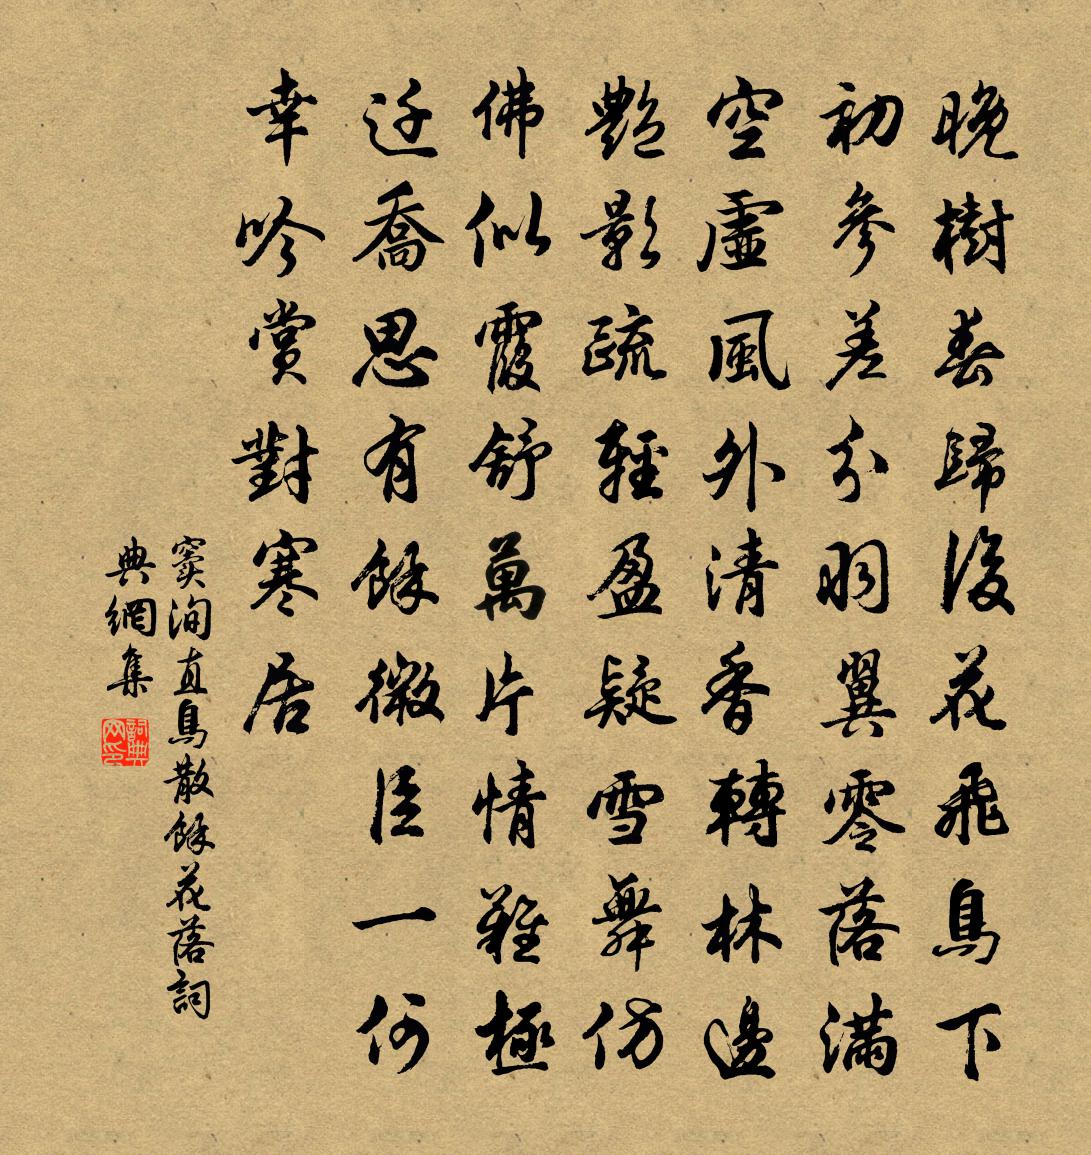 晚樹春歸後花飛鳥下
初參差分羽翼零落滿
空虛風外清香轉林邊
艷影疏輕盈疑雪舞仿
佛似霞舒萬片情難極
迁喬思有餘微臣一何
幸吟賞對寒居
竇洵直鳥散餘花落詞
典網集
詞典网印